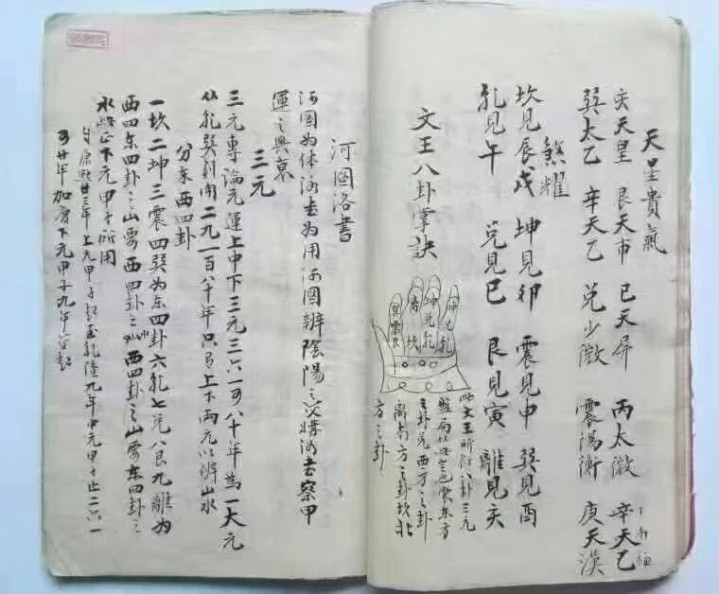 天星貴氣
亥天皇 艮天市 巳天屏 丙太微 辛天乙
巽太乙 辛天乙 兌少微 震陽衡 庚天漢
煞耀
坎見辰戌 坤見卯 震見申 巽見酉
乾見午 兌見巳 艮見寅 離見亥
文王八卦掌訣
坤兌乾
離坎
巽震艮
文王所衍八卦三元
之卦兌西方之卦
離南方之卦坎北
方之卦
河图洛書
河图为体洛书为用河图辨陰陽之洛书察甲
運之興衰
三元
三元專論元運上中下三元三六一百八十年為一大元
从乾巽剖開二九一百八十年只有上下两元以辨山水
分东西四卦
一坎二坤三震四巽为东四卦六乾七兌八艮九離为
西四卦东四卦之山要西四卦之水西四卦之山要东四卦之
水此正下元甲子所用
康熙廿三年上九甲子起至乾隆九年中元甲子止
廿年加慶下元甲子九年